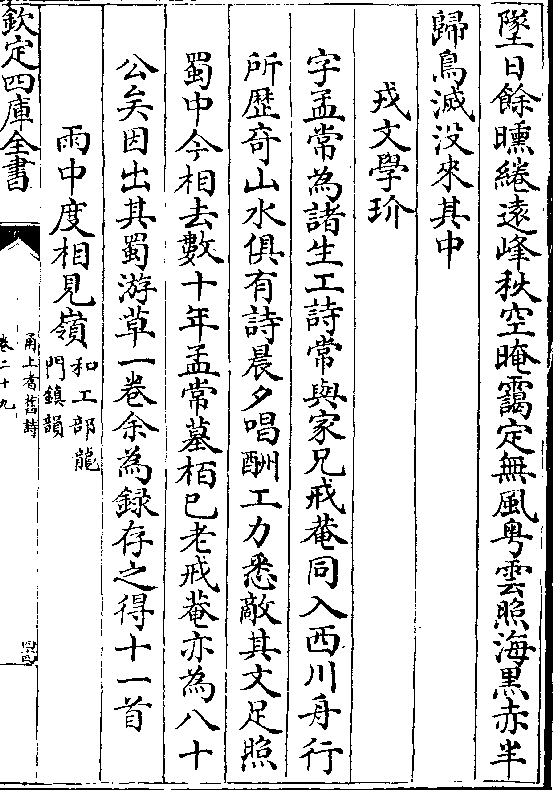 墜日餘曛綣遠峰秋空晻靄定無風粤雲照海黒赤半
歸鳥滅没來其中
戎文學玠
字孟常為諸生工詩常與家兄戒菴同入西川舟行
所歴竒山水俱有詩晨夕唱酬工力悉敵其文足照
蜀中今相去數十年孟常墓栢已老戒菴亦為八十
公矣因出其蜀游草一卷余為録存之得十一首
雨中度相見嶺和工部龍
門鎮韻
欽定四庫全書
甬上耆舊詩
卷二十九
四